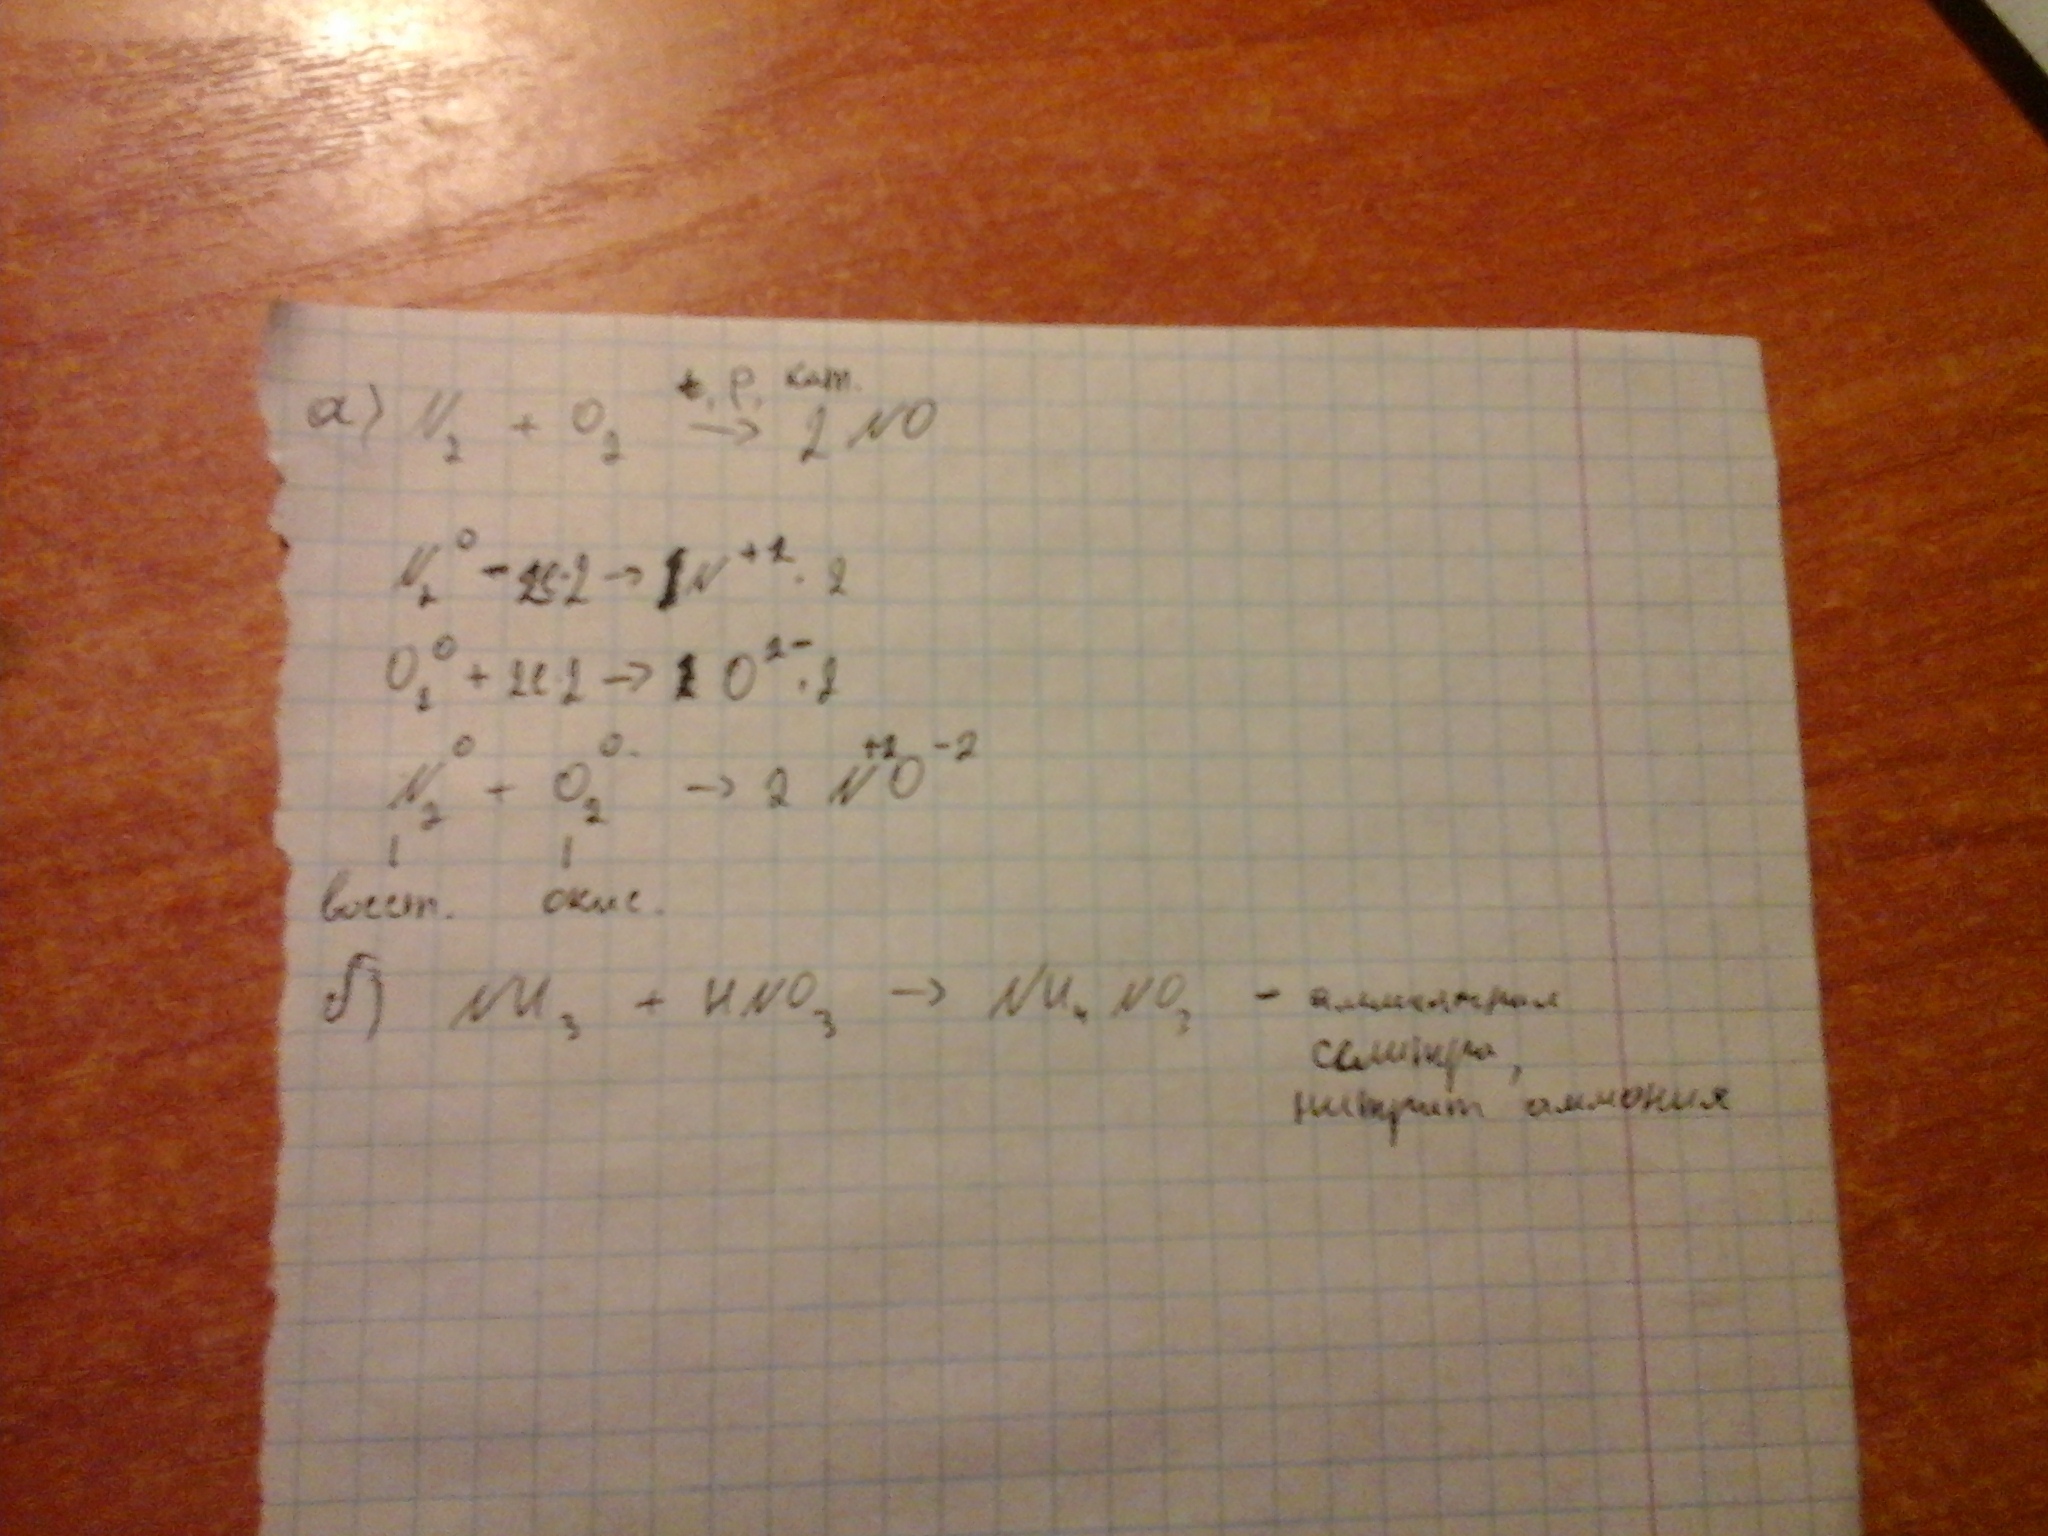 а) N₂ + O₂ t, p, кат. → 2 NO
N₂⁰ - 2e·2 → 1N⁺²·2
O₂⁰ + 2e·2 → 1 O²⁻·2
N₂⁰ + O₂⁰ → 2 N⁺²O⁻²
восст. окис.
б) NH₃ + HNO₃ → NH₄NO₃ - аммиачная
селитра,
нитрат аммония